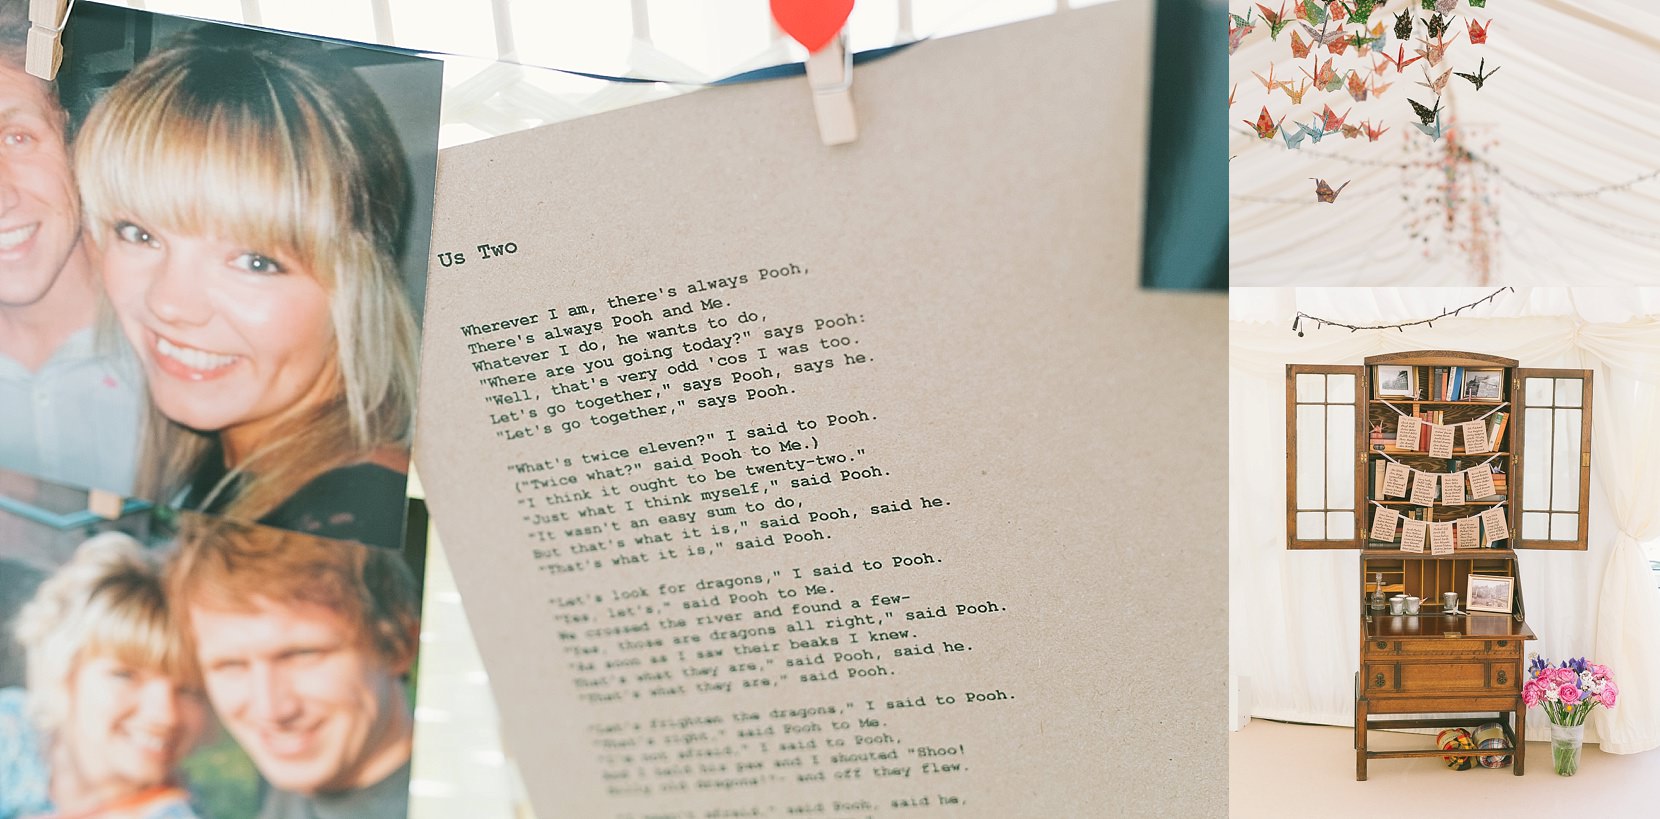 Us Two
Wherever I am, there's always Pooh,
There's always Pooh and Me.
Whatever I do, he wants to do,
"Where are you going today?" says Pooh:
"Well, that's very odd 'cos I was too.
Let's go together," says Pooh, says he.
"Let's go together," says Pooh.
"What's twice eleven?" I said to Pooh.
("Twice what?" said Pooh to Me.)
"I think it ought to be twenty-two."
"Just what I think myself," said Pooh.
"It wasn't an easy sum to do,
But that's what it is," said Pooh, said he.
"That's what it is," said Pooh.
"Let's look for dragons," I said to Pooh.
"Yes, let's," said Pooh to Me.
We crossed the river and found a few-
"Yes, those are dragons all right," said Pooh.
"As soon as I saw their beaks I knew.
That's what they are," said Pooh, said he.
"That's what they are," said Pooh.
"Let's frighten the dragons," I said to Pooh.
"That's right," said Pooh to Me.
"I'm not afraid," I said to Pooh,
And I held his paw and I shouted "Shoo!
Silly old dragons!"- and off they flew.
"I wasn't afraid," said Pooh, said he,